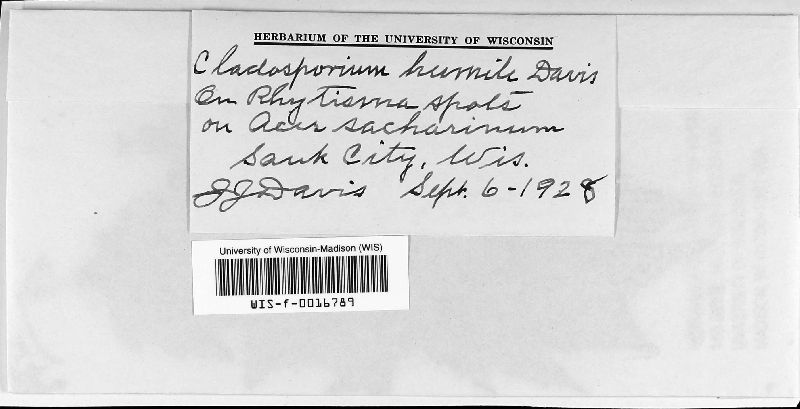 HERBARIUM OF THE UNIVERSITY OF WISCONSIN
Cladosporium humile Davis
On Rhytisma spots
on Acer saccharinum
Sauk City, Wis.
JJDavis Sept. 6-1928
University of Wisconsin-Madison (WIS)
WIS-f-0016789